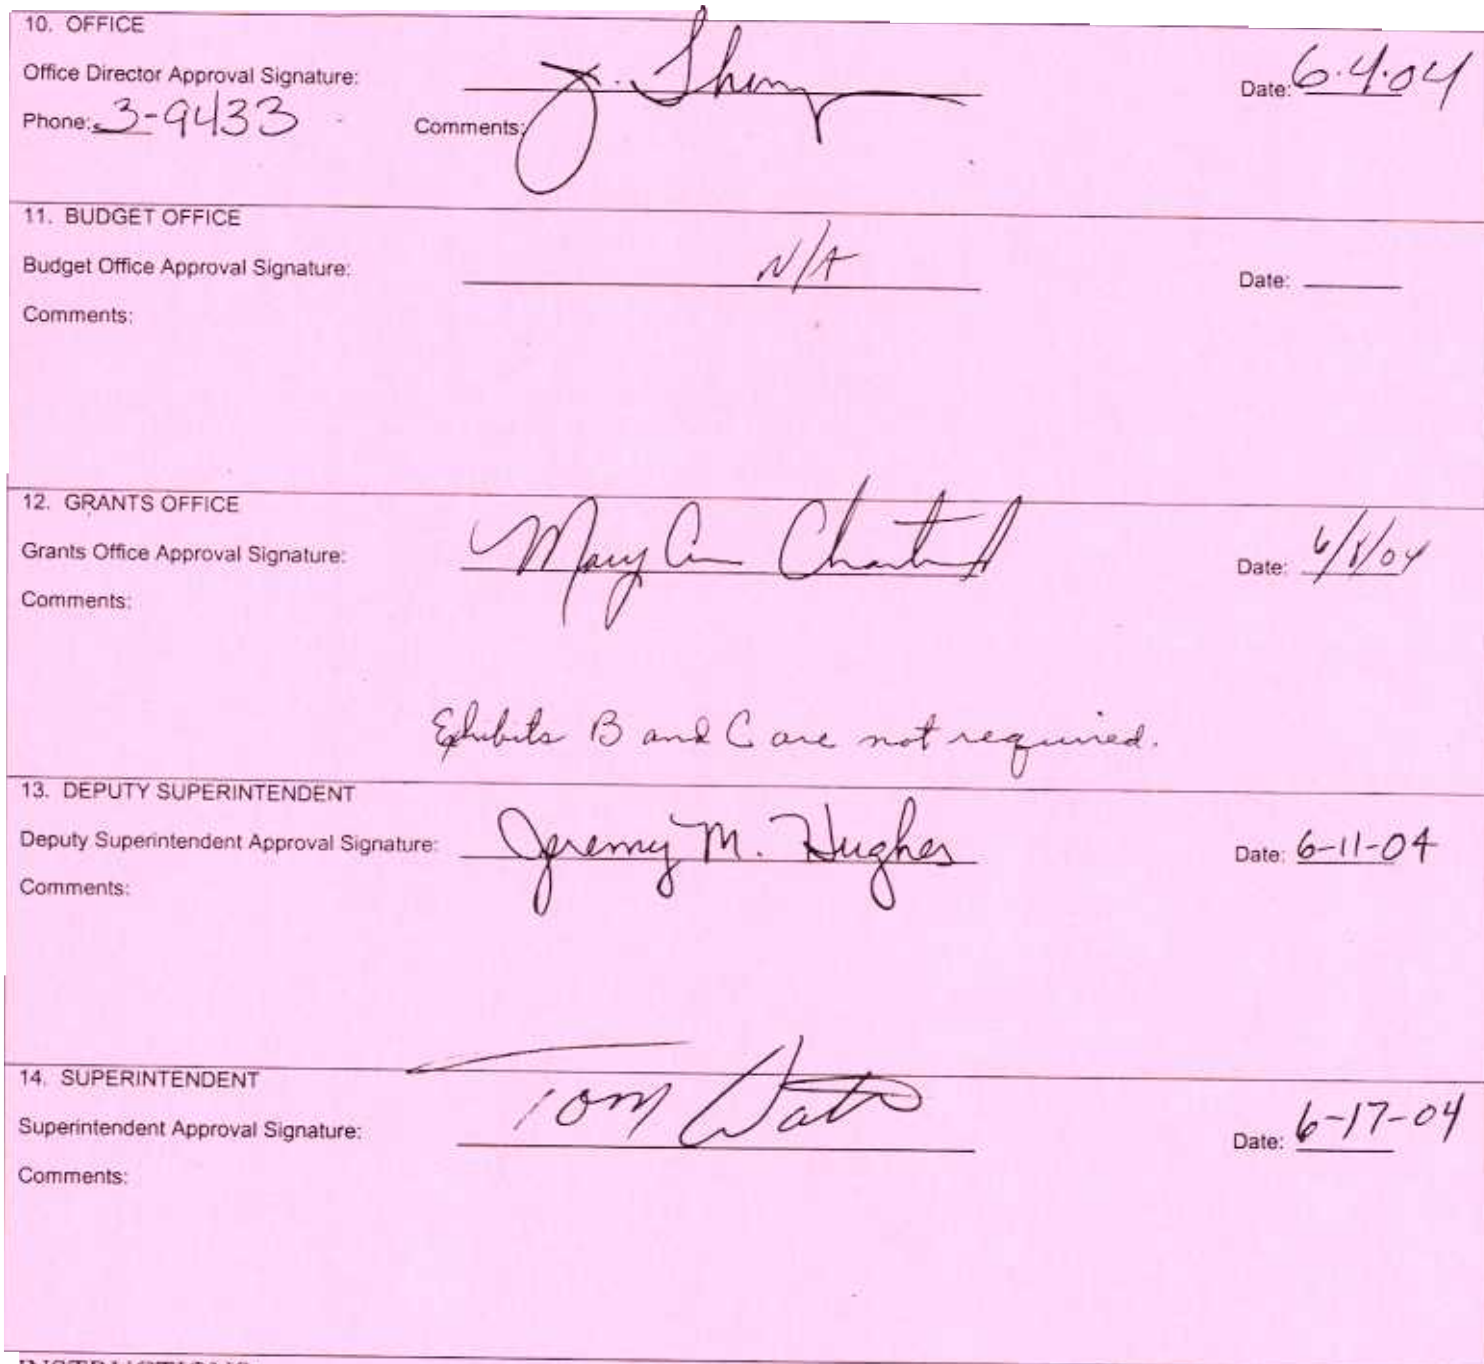 10. OFFICE
Office Director Approval Signature: J. Date: 6.4.04
Phone: 3-9433 Comments:
11. BUDGET OFFICE
Budget Office Approval Signature: N/A Date:
Comments:
12. GRANTS OFFICE
Grants Office Approval Signature: Mary Date: 6/8/04
Comments:
Exhibits B and C are not required.
13. DEPUTY SUPERINTENDENT
Deputy Superintendent Approval Signature: Jeremy M. Hughes Date: 6-11-04
Comments:
14. SUPERINTENDENT
Superintendent Approval Signature: Tom Date: 6-17-04
Comments: